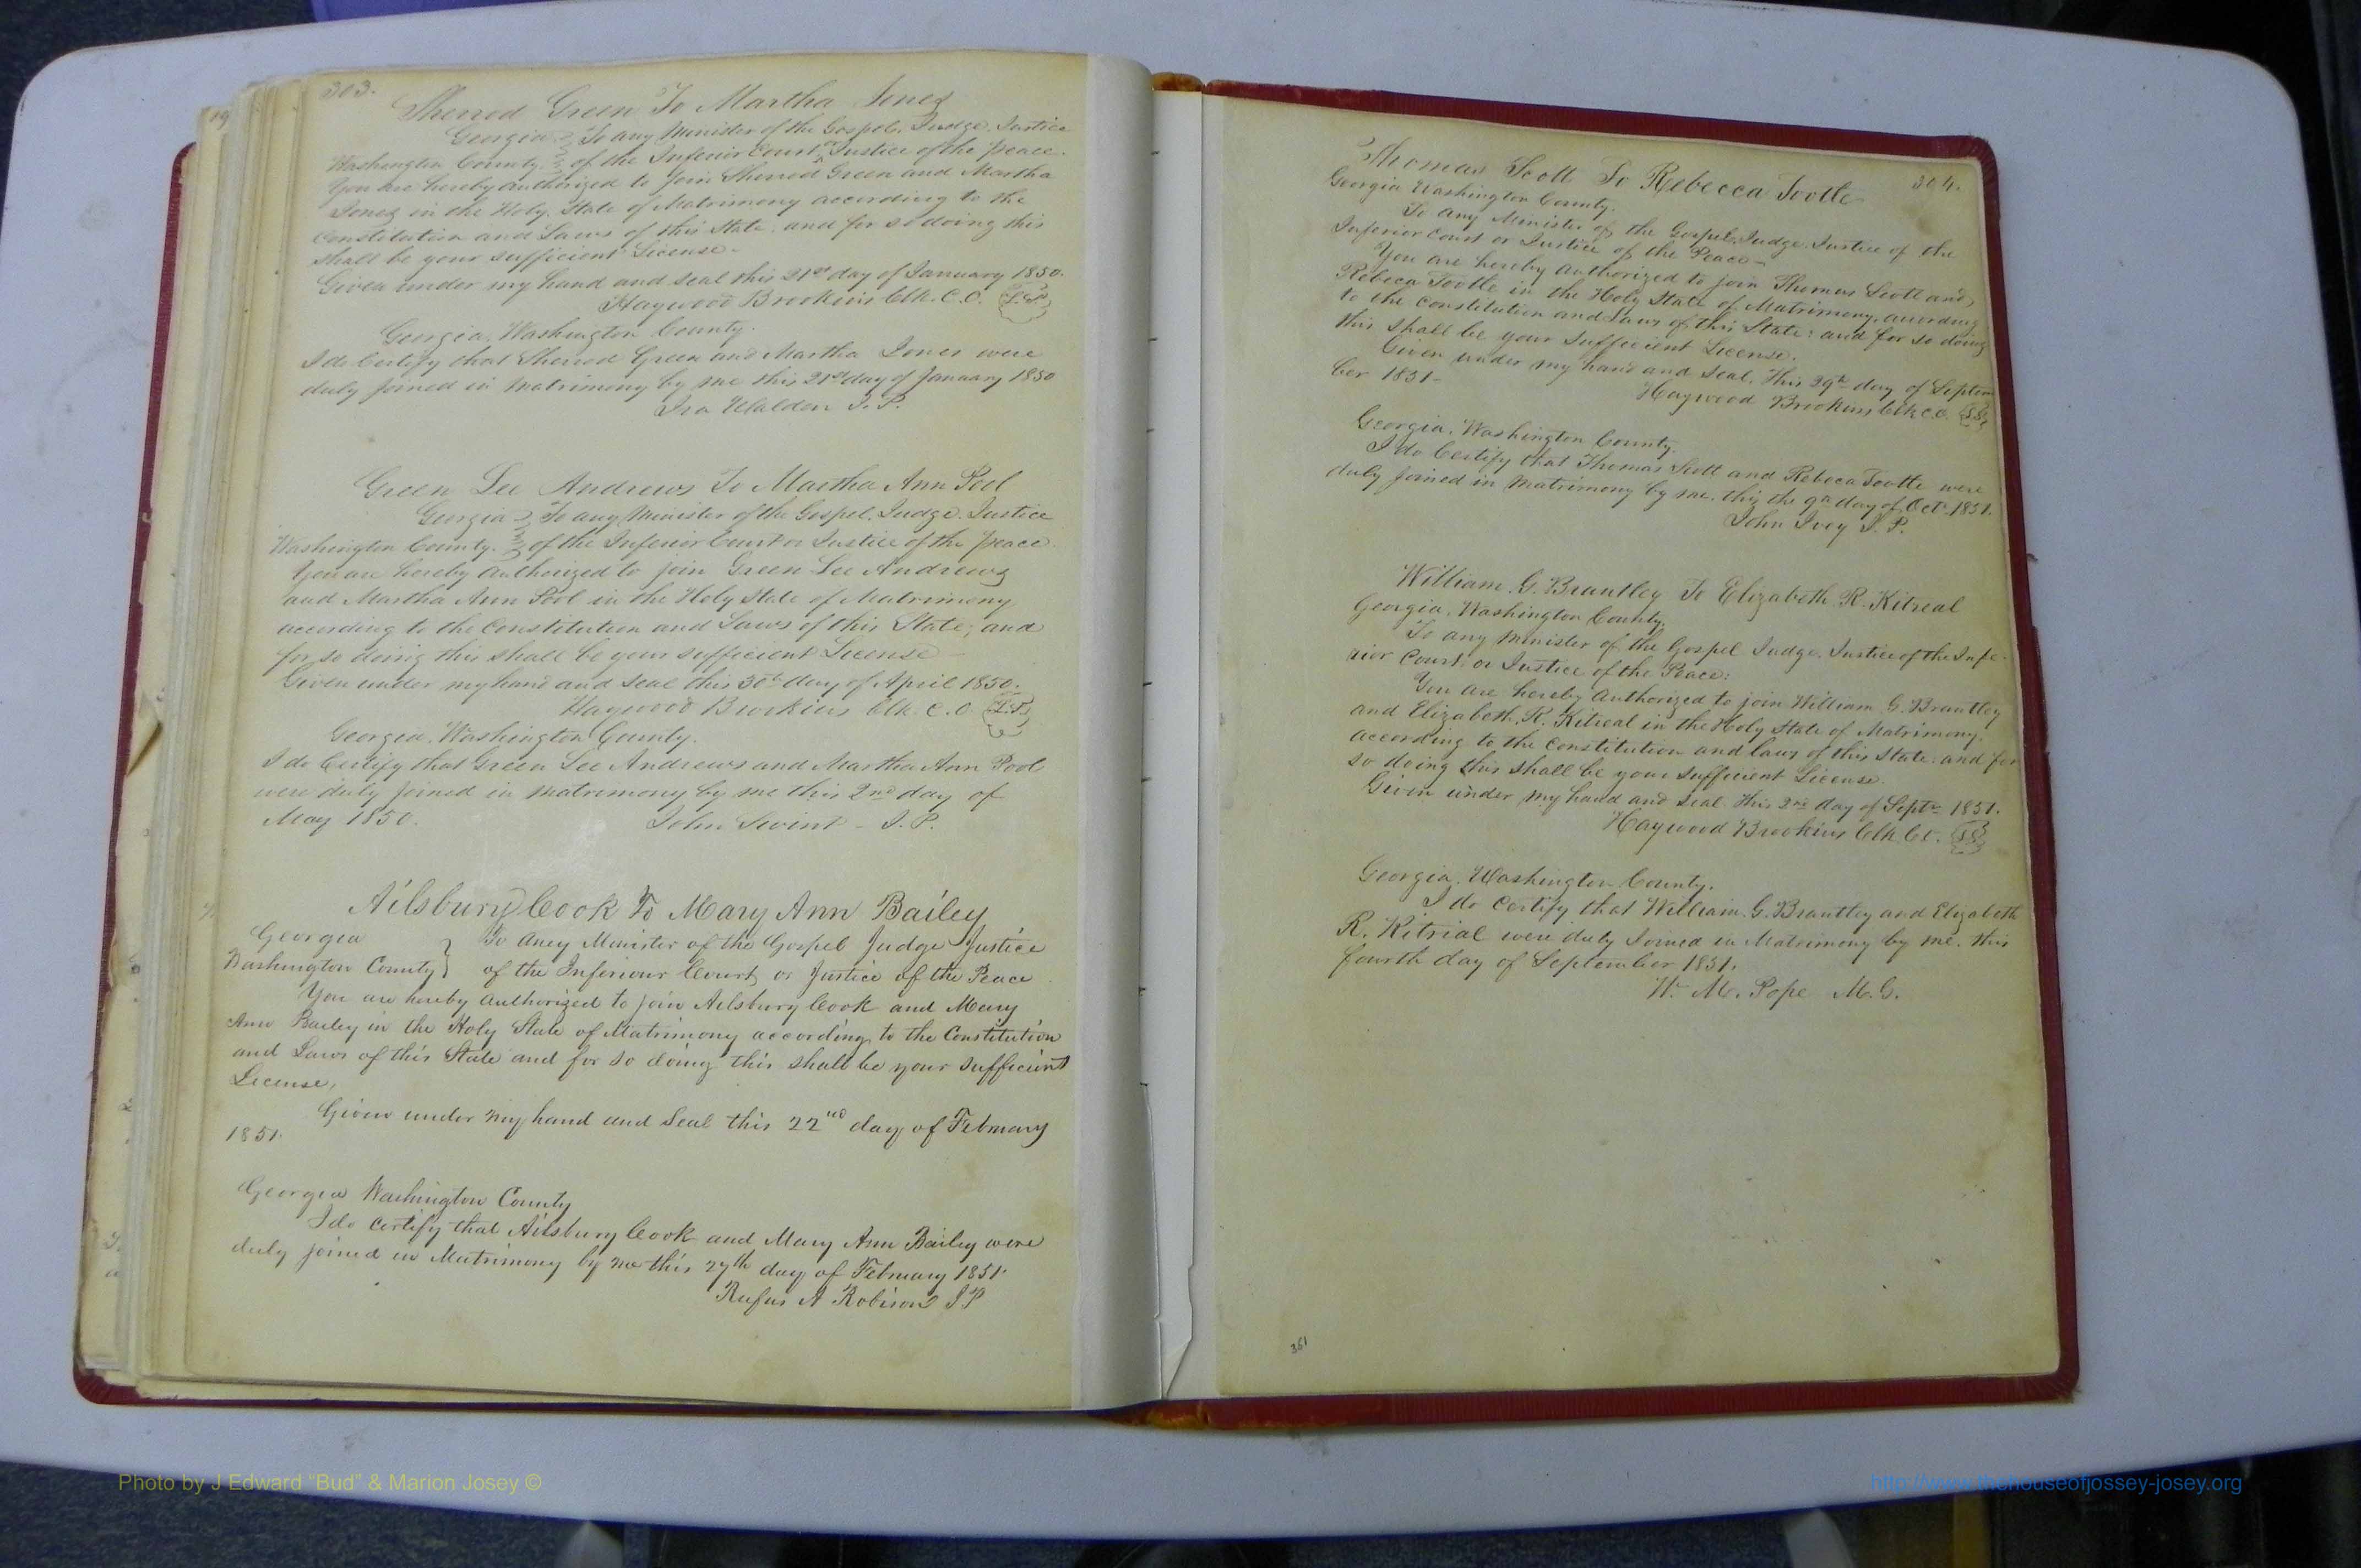 303.
Sherrod Green To Martha Jones
Georgia To any Minister of the Gospel, Judge, Justice
Washington County. of the Inferior Court or Justice of the peace.
You are hereby authorized to join Sherrod Green and Martha
Jones in the Holy State of Matrimony according to the
constitution and Laws of this State, and for so doing this
shall be your sufficient License.
Given under my hand and seal this 21st day of January 1850.
Haywood Brookins Clk. C.O. L.S.
Georgia, Washington County.
I do Certify that Sherrod Green and Martha Jones were
duly joined in matrimony by me this 21st day of January 1850
Ira Walden J.P.
Green Lee Andrews To Martha Ann Pool
Georgia To any Minister of the Gospel, Judge, Justice
Washington County. of the Inferior Court or Justice of the peace.
You are hereby authorized to join Green Lee Andrews
and Martha Ann Pool in the Holy State of Matrimony
according to the Constitution and Laws of this State; and
for so doing this shall be your sufficient License
Given under my hand and seal this 30th day of April 1850.
Haywood Brookins Clk. C.O. L.S.
Georgia, Washington County.
I do Certify that Green Lee Andrews and Martha Ann Pool
were duly joined in matrimony by me this 2nd day of
May 1850. John Swint - J.P.
Ailsbury Cook To Mary Ann Bailey
Georgia } To Aney Minister of the Gospel Judge Justice
Washington County } of the Inferiour Court or Justice of the Peace
You are hereby authorized to join Ailsbury Cook and Mary
Ann Bailey in the Holy State of Matrimony according to the Constitution
and Laws of this State and for so doing this shall be your sufficient
License,
Given under my hand and Seal this 22nd day of February
1851.
Georgia Washington County
I do certify that Ailsbury Cook and Mary Ann Bailey were
duly joined in Matrimony by me this 27th day of February 1851.
Rufus A Robison J P
304.
Thomas Scott To Rebecca Tootle
Georgia Washington County.
To any Minister of the Gospel, Judge, Justice of the
Inferior Court or Justice of the Peace -
You are hereby authorized to join Thomas Scott and
Rebeca Tootle in the Holy State of Matrimony, according
to the constitution and Laws of this State: and for so doing
this shall be your sufficient License.
Given under my hand and seal, this 29th day of Septem
ber 1851 -
Haywood Brookins Clk C.O. L.S.
Georgia, Washington County.
I do Certify that Thomas Scott and Rebeca Tootle were
duly joined in matrimony by me, this the 9th day of Oct. 1851.
John Ivey J.P.
William. G. Brantley To Elizabeth R. Kitreal
Georgia, Washington County.
To any minister of the Gospel Judge, Justice of the Infe-
rior Court: or Justice of the Peace:
You are hereby authorized to join William G. Brantley
and Elizabeth. R. Kitreal in the Holy State of Matrimony,
according to the constitution and laws of this State: and for
so doing this shall be your sufficient License.
Given under my hand and seal this 2nd day of Septr 1851.
Haywood Brookins Clk Co. L.S.
Georgia, Washington County.
I do Certify that William. G. Brantley and Elizabeth
R. Kitrial were duly Joined in Matrimony by me. this
fourth day of September 1851.
W. M. Pope M.G.
361
Photo by J Edward “Bud” & Marion Josey ©
http://www.thehouseofjossey-josey.org